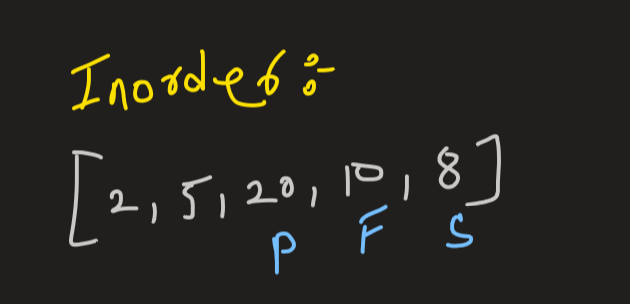 Inorder :-
[2, 5, 20, 10, 8]
P F S